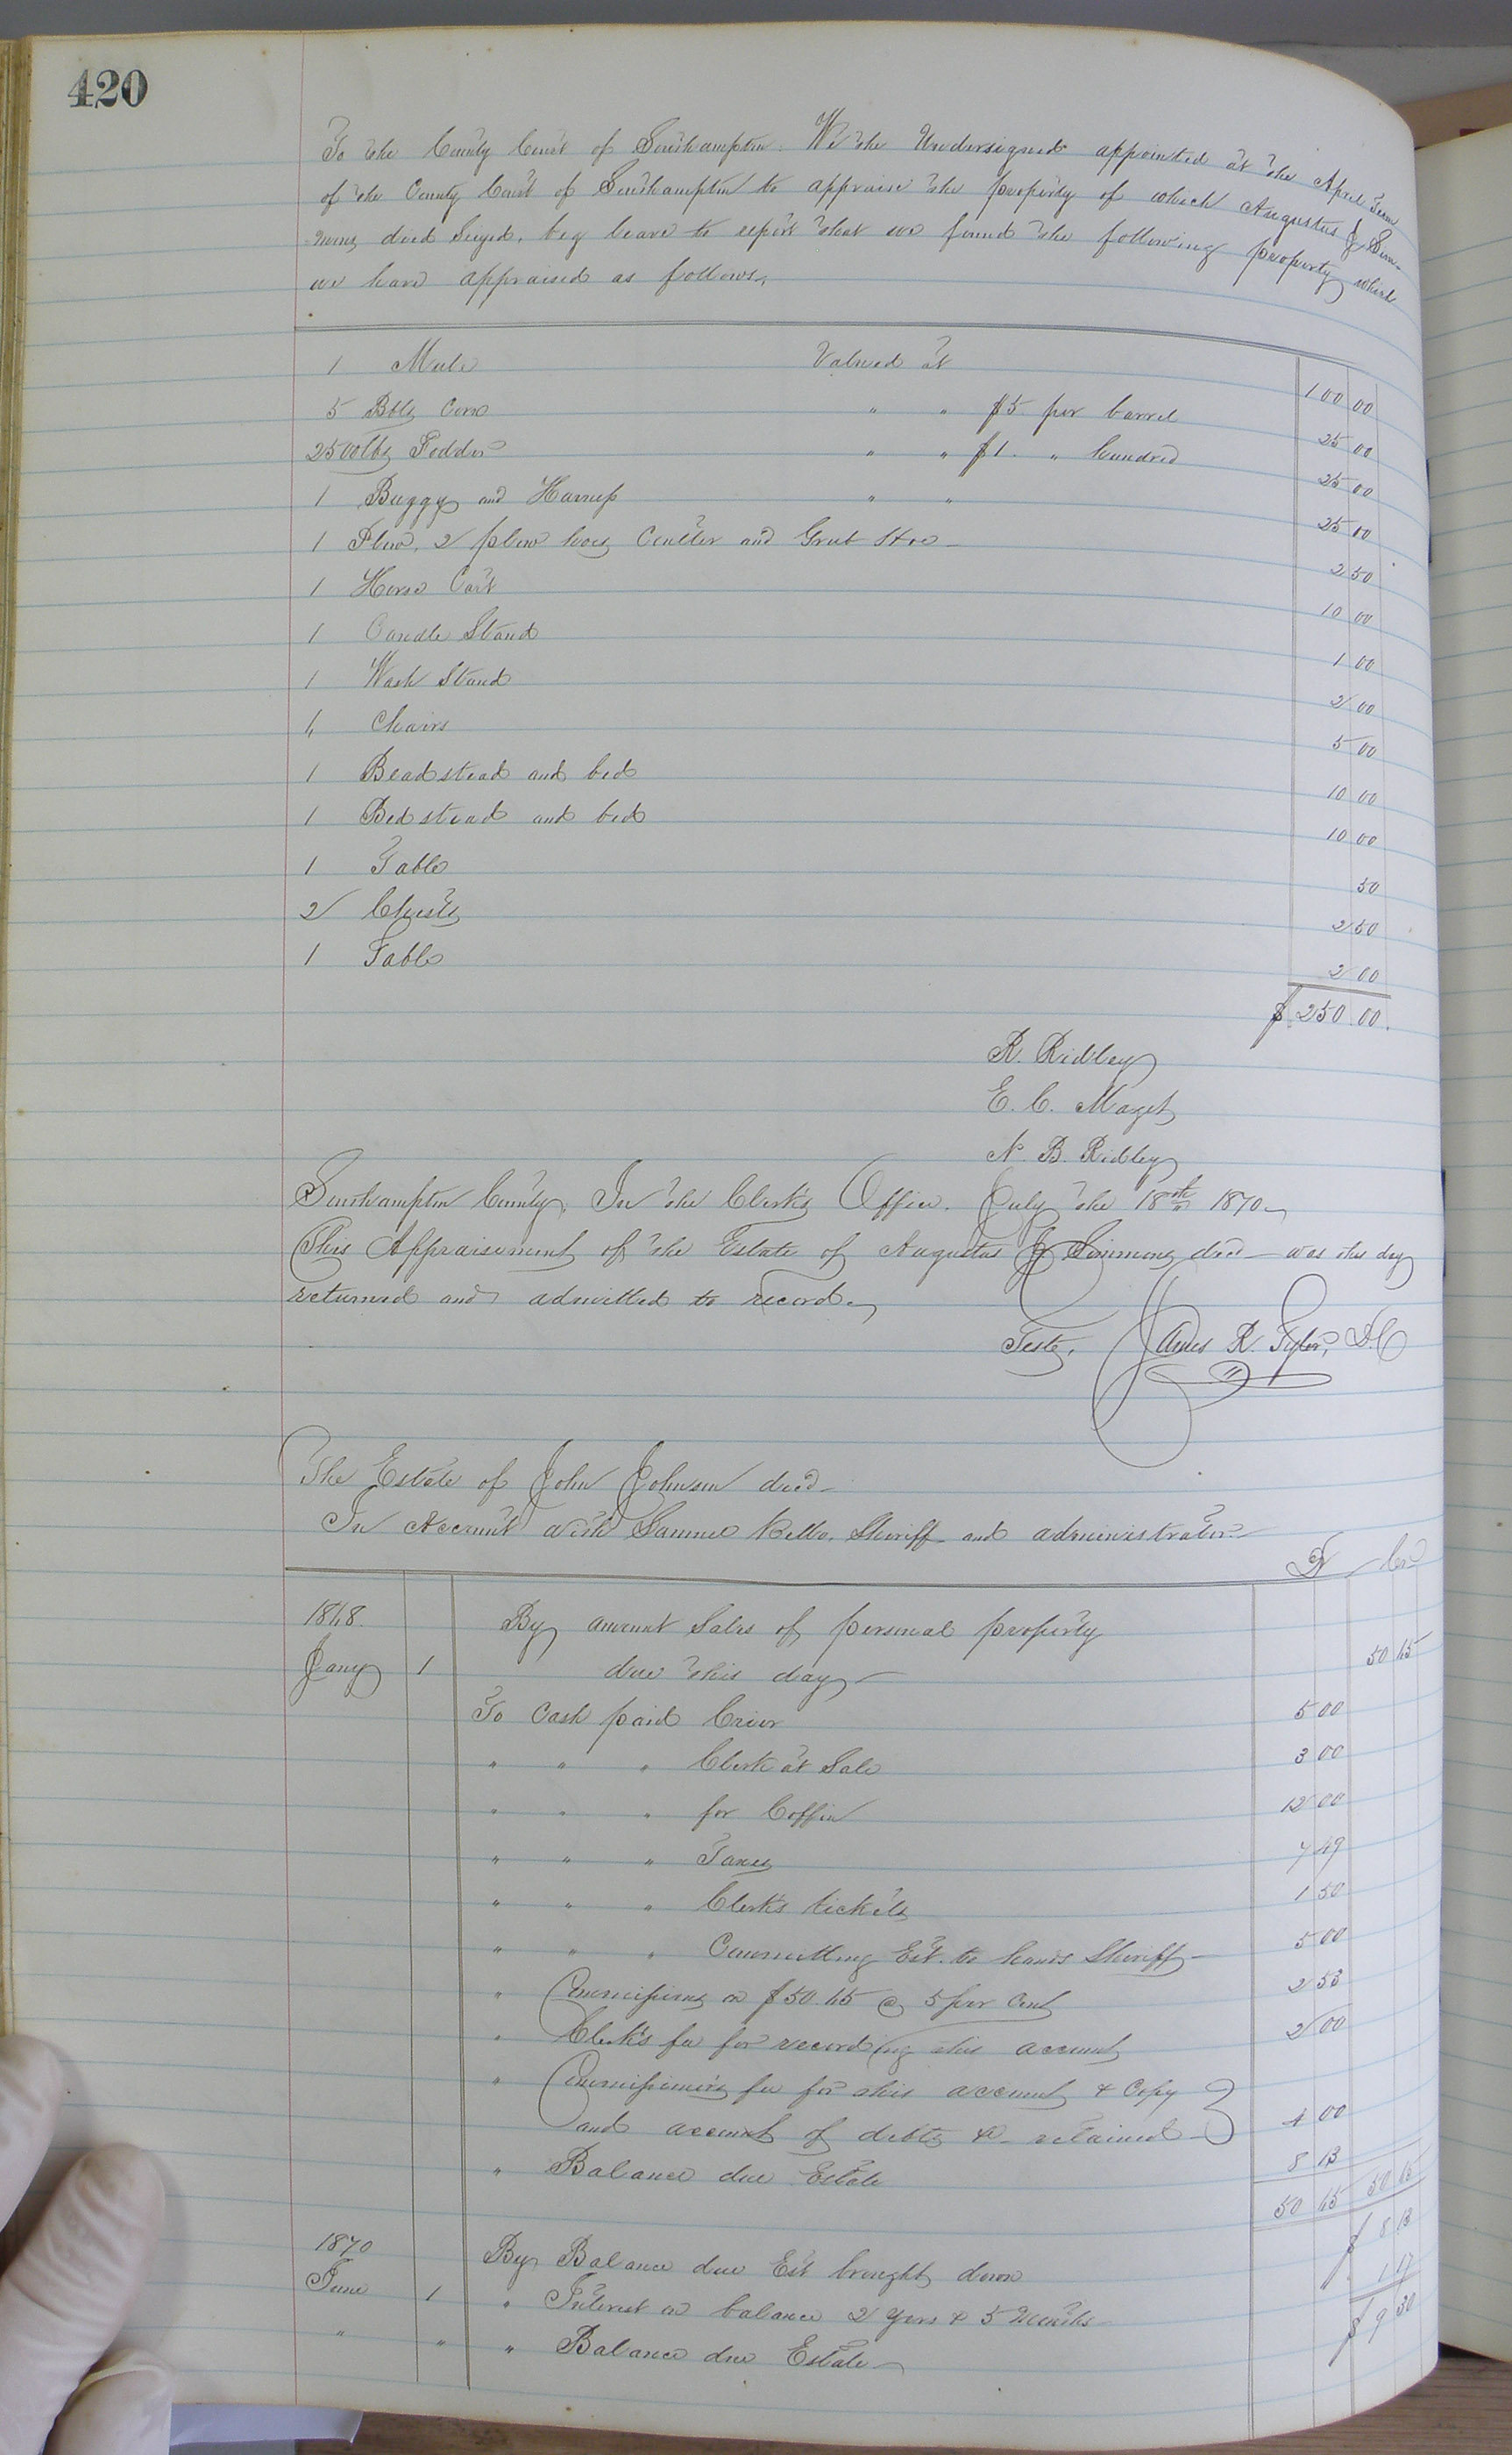 420
To the County Court of Southampton. We the Undersigned appointed at the April Term
of the County Court of Southampton to appraise the property of which Augustus J Sim-
mons died Seized, beg leave to report that we found the following property which
we have appraised as follows,
1 Mule Valued at 100 00
5 Bbls Corn " " $5 per barrel 25 00
2500 lbs Fodder " " $1. " hundred 25 00
1 Buggy and Harness " " 25 00
1 Plow, 2 plow hoes Coulter and Grub Hoe 2 50
1 Horse Cart 10 00
1 Candle Stand 1 00
1 Wash Stand 2 00
4 Chairs 5 00
1 Beadstead and bed 10 00
1 Bedstead and bed 10 00
1 Table 50
2 Chests 2 50
1 Table 2 00
$ 250.00.
R. Ridley
E. C. Maget
N. B. Ridley
Southampton County, In the Clerk's Office. July the 18th 1870
This Appraisement of the Estate of Augustus J Simmons decd was this day
returned and admitted to record.
Teste, James R. Tyler, D.C
The Estate of John Johnson decd
In Account with Samuel Kello, Sheriff and administrator
Dr Cr
1868. By amount Sales of personal property
Jany 1 due this day 50 45
To Cash paid Crier 5 00
" " " Clerk at Sale 3 00
" " " for Coffin 12 00
" " " Taxes 7 49
" " " Clerk's tickets 1 50
" " " Committing Est. to hands Sheriff 5 00
" Commissions on $50.45 @ 5 per Cent 2 53
" Clerk's fee for recording this account 2 00
" Commissioner's fee for this account & Copy
and account of debts &c retained 4 00
" Balance due Estate 8 13
50 45 50 45
1870 By Balance due Est brought down $ 8 13
June 1 " Interest on balance 2 years & 5 Months 1 17
" " " Balance due Estate $ 9 30